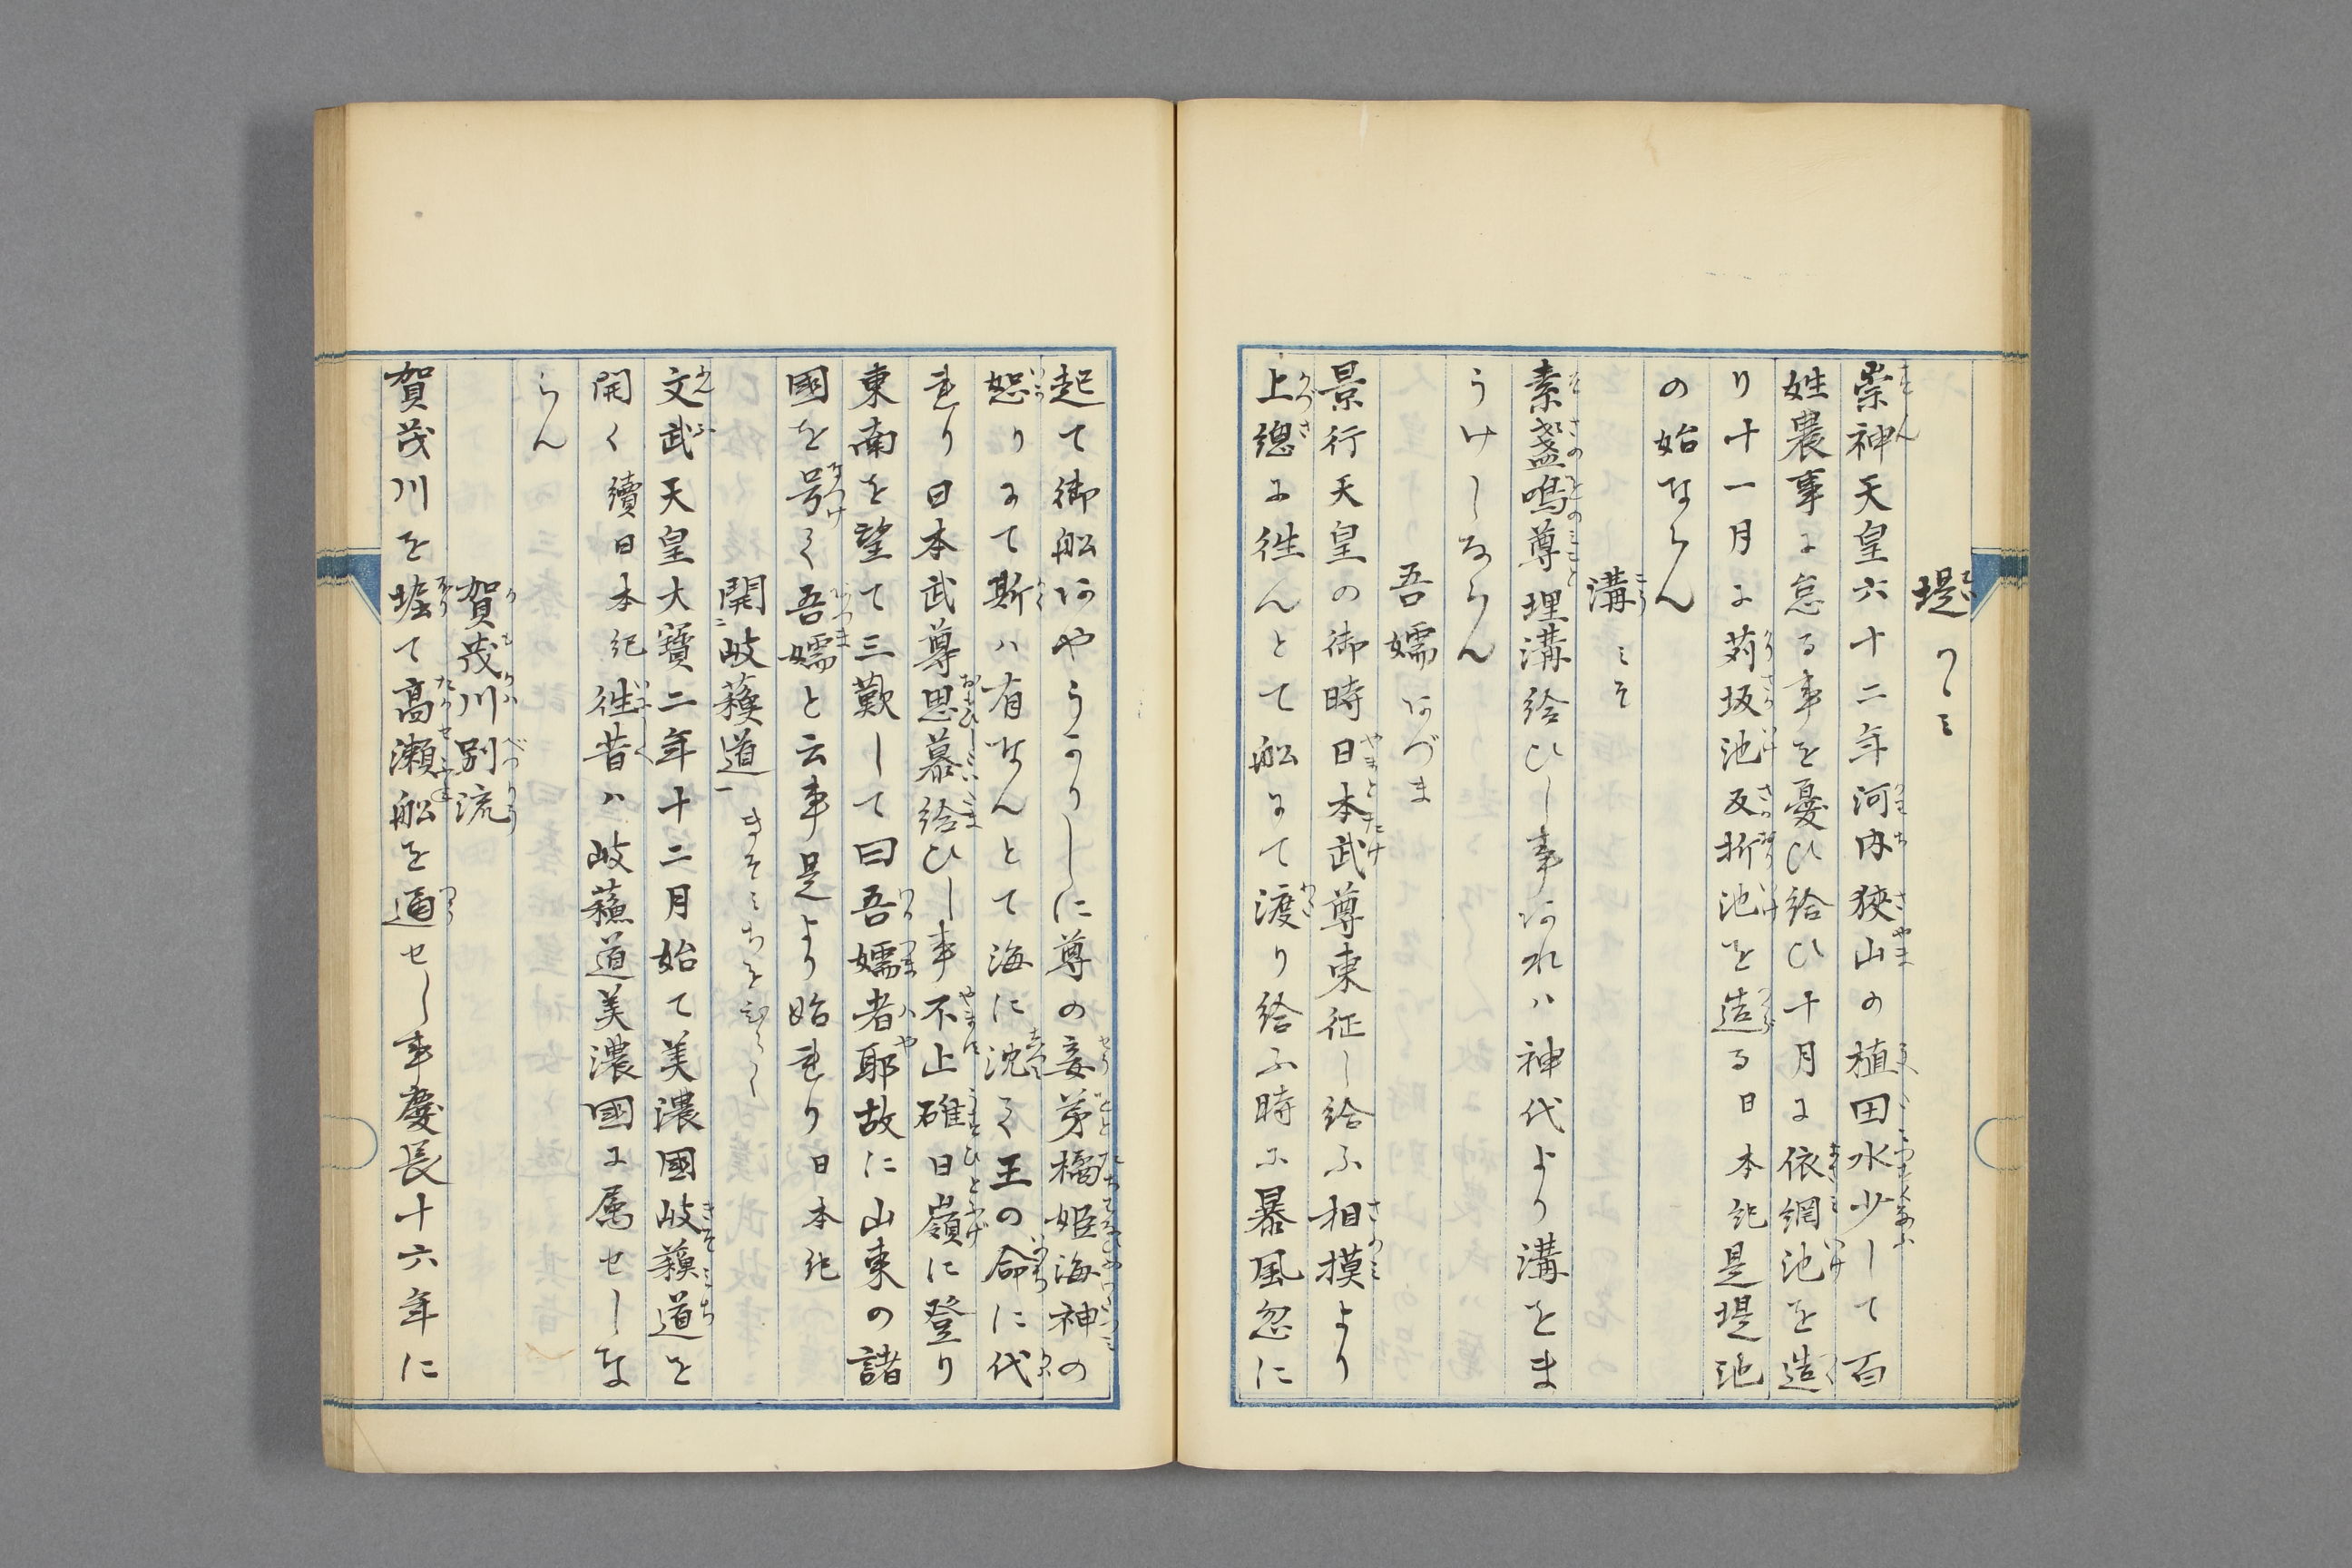 堤 つゝミ
崇神天皇六十二年河内狭山の植田水少して百
姓農事に怠る事を憂ひ給ひ十月に依網池を造
り十一月に苅坂池反折池を造る日本紀是堤池
の始ならん
溝 ミそ
素盞嗚尊埋溝給ひし事あれハ神代より溝をま
うけしならん
吾嬬 あづま
景行天皇の御時日本武尊東征し給ふ相摸より
上總に徃んとて船にて渡り給ふ時に暴風忽に
起て御船あやうかりしに尊の妾弟橘姫海神の
怒りにて斯ハ有なんとて海に沈て王の命に代
れり日本武尊思慕給ひし事不止碓日嶺に登り
東南を望て三歎して曰吾嬬者耶故に山東の諸
國を号て吾嬬と云事是より始れり日本紀
開二岐蘓道一 きそミちをひらく
文武天皇大寳二年十二月始て美濃國岐蘓道を
開く續日本紀徃昔ハ岐蘓道美濃國に属せしな
らん
賀茂川別流
賀茂川を堀て高瀬船を通せし事慶長十六年に